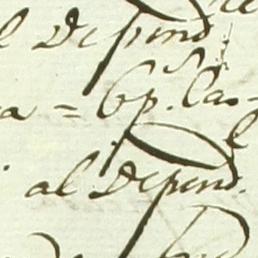 l Depend.
a = 6p.s Cas-
al Depend.